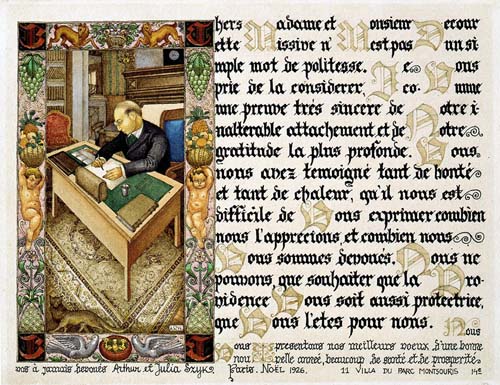 hers Madame et Monsieur Decour
ette Missive n' N'est pas D'un si
mple mot de politesse. Je Vous
prie de la considerer,
une preuve très sincere de Notre i
inalterable attachement et de Notre
gratitude la plus profonde. Vous
nous avez temoigné tant de bonté
et tant de chaleur, qu'il nous est
difficile de Vous exprimer combien
nous l'apprecions, et combien nous
Vous sommes devoués. Nous ne
pouvons, que souhaiter que la Pro-
vidence Vous soit aussi protectrice,
que Vous l'etes pour nous. Nous
Vous presentons nos meilleurs voeux d'une bonne
nouvelle année, beaucoup de santé et de prosperité
vos à jamais devoués Arthur et Julia Szyk. Paris. Noël 1926. 11 VILLA DU PARC MONTSOURIS 14e